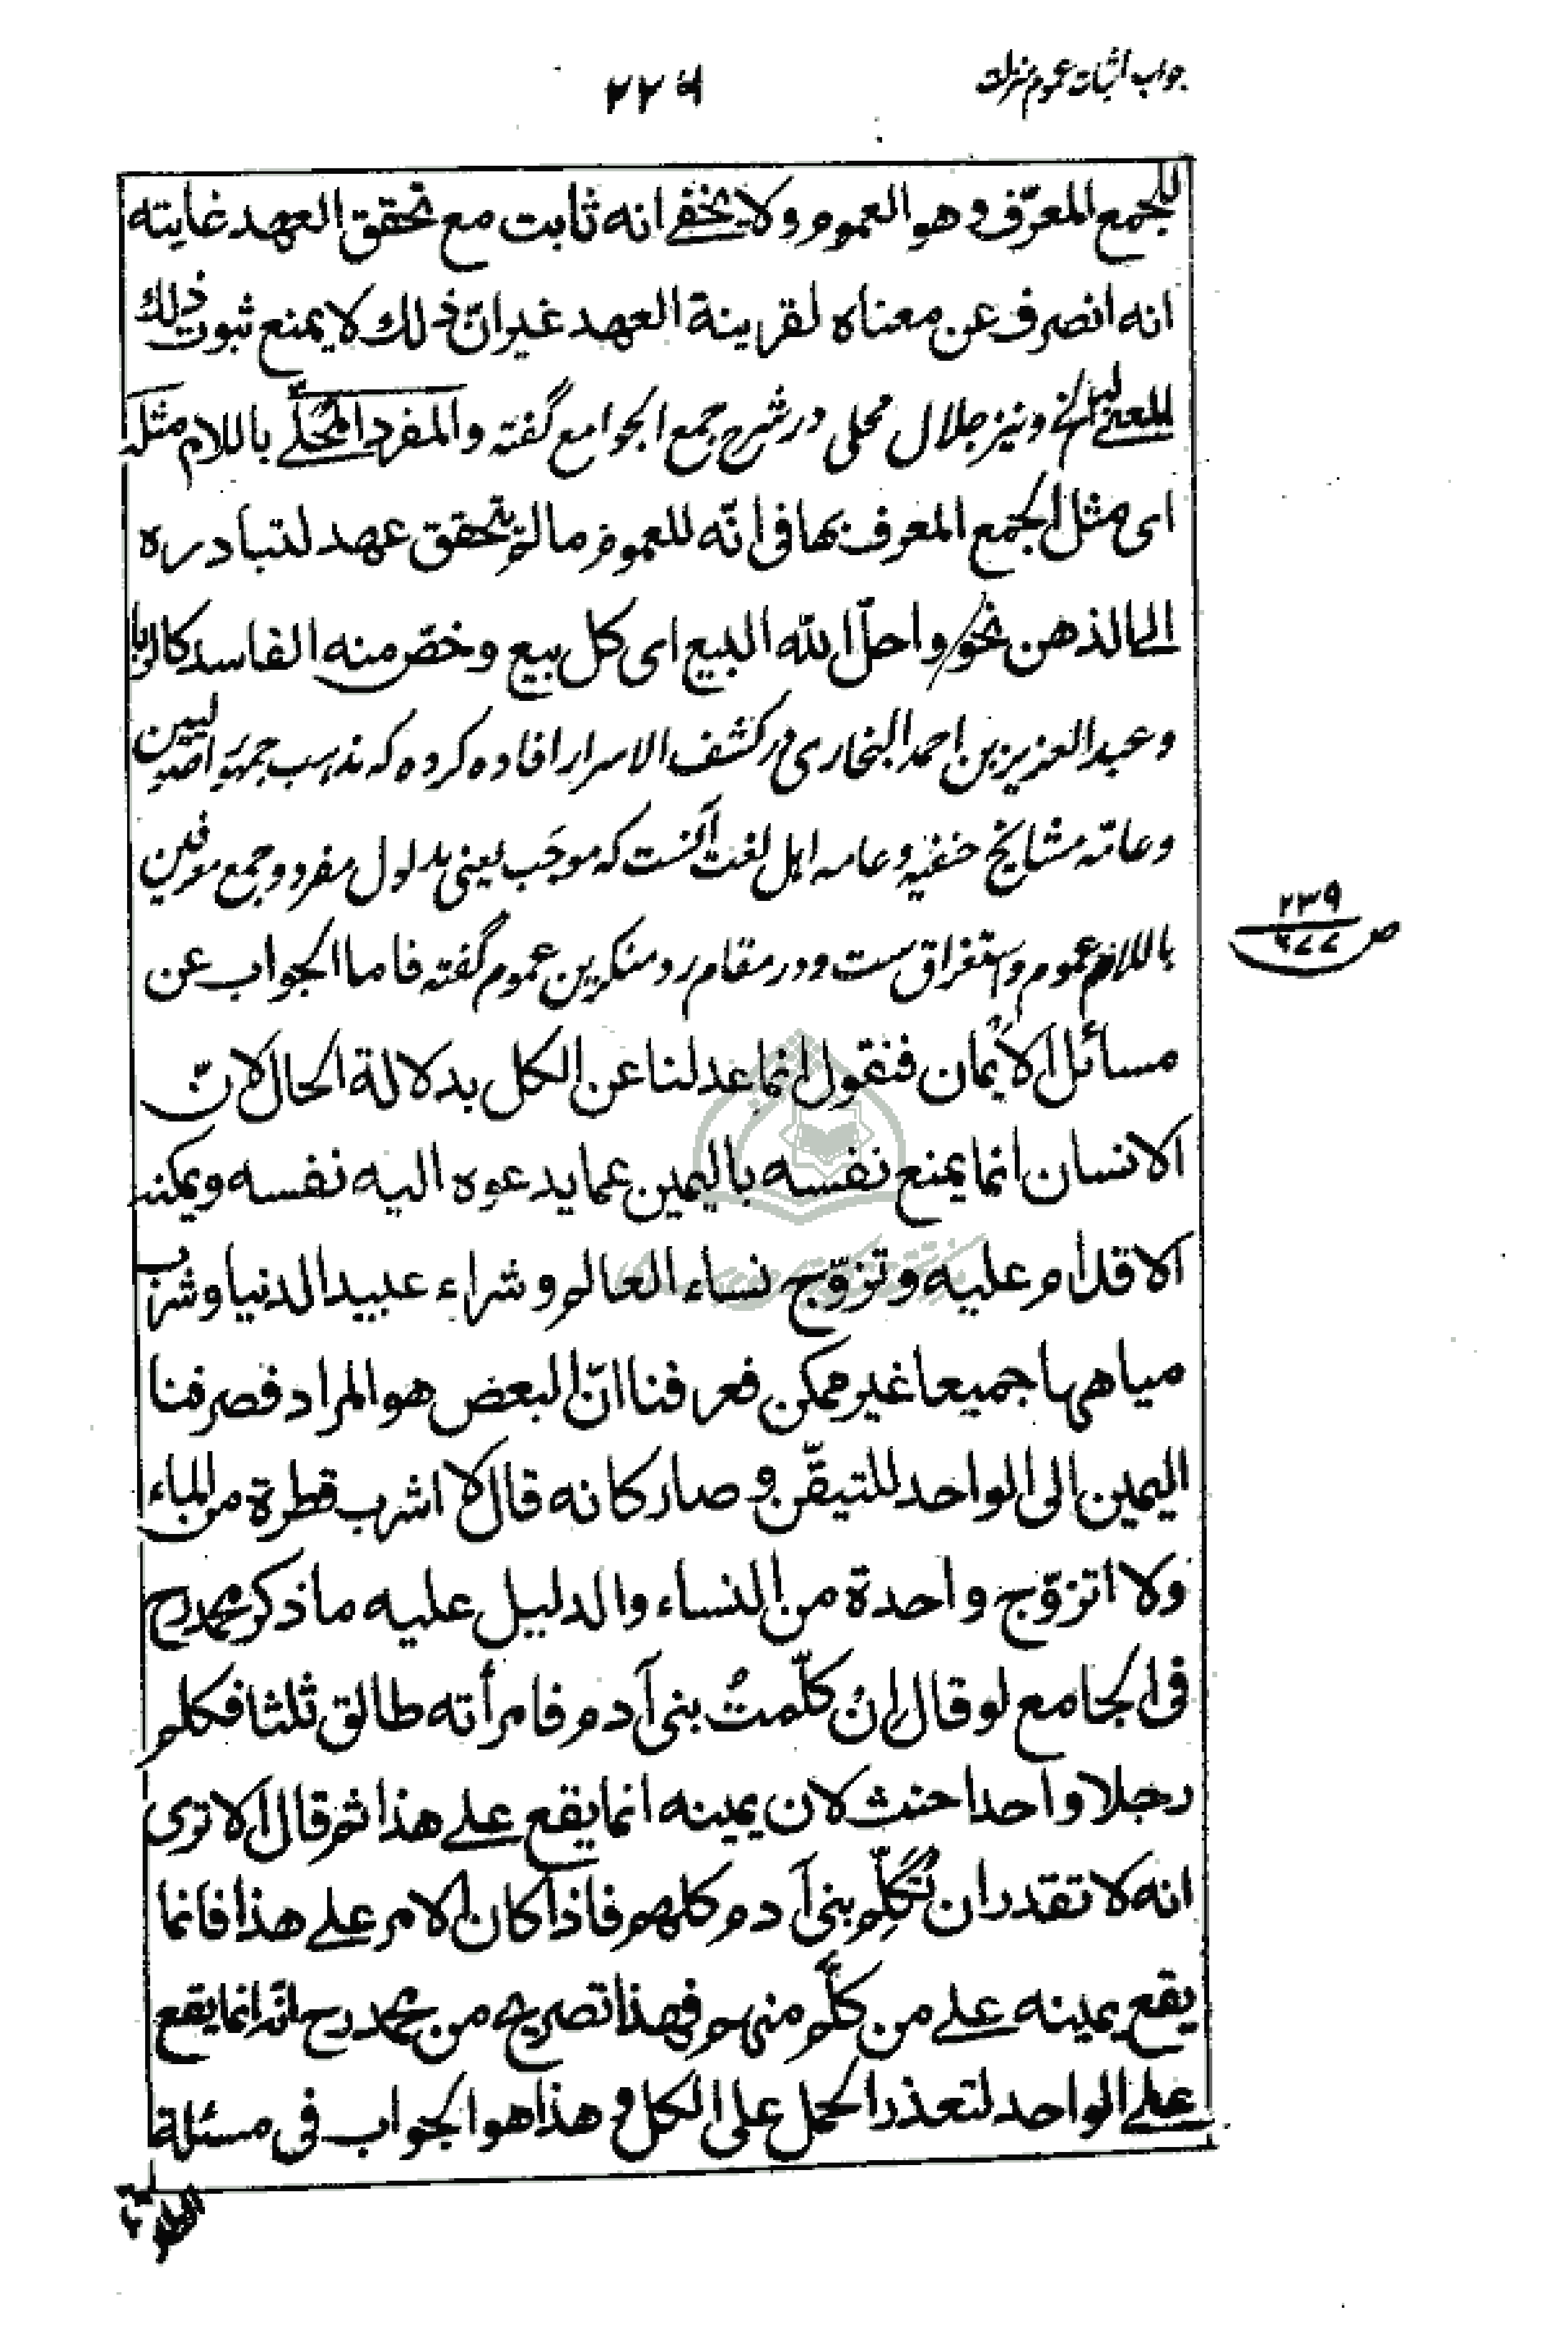 جواب اثبات عموم منزلت
۲۲۶
للجمع المعرّف وهو العموم ولا يخفى انه ثابت مع تحقق العهد غايته
انه انصرف عن معناه لقرينة العهد غير انّ ذلك لا يمنع ثبوت ذلك
للمعنى الخ ونیز جلال محلی در شرح جمع الجوامع گفته والمفرد المحلّى باللام مثله
اى مثل الجمع المعرف بها فى انّه للعموم ما لم يتحقق عهد لتبادره
الى الذهن نحو واحلّ الله البيع اى كل بيع وخصّ منه الفاسد كالربا
وعبد العزيز بن احمد البخاری در کشف الاسرار افاده کرده که مذهب جمهور اصولیین
وعامّه مشایخ حنفیه وعامه اهل لغت آنست که موجَب یعنی مدلول مفرد وجمع معرفین
باللام عموم واستغراق ست ودر مقام رد منکرین عموم گفته فاما الجواب عن
مسائل الأيمان فنقول انما عدلنا عن الكل بدلالة الحال لانّ
الانسان انما يمنع نفسه باليمين عما يدعوه اليه نفسه ويمكنه
الاقدام عليه وتزوّج نساء العالم وشراء عبيد الدنيا وشرب
مياهها جميعا غير ممكن فعرفنا انّ البعض هو المراد فصرفنا
اليمين الى الواحد للتيقّن وصار كانه قال لا اشرب قطرة من الماء
ولا اتزوّج واحدة من النساء والدليل عليه ما ذكر محمد رح
فى الجامع لو قال إن كلّمتُ بنى آدم فامرأته طالق ثلثا فكلم
رجلا واحدا حنث لان يمينه انما يقع على هذا ثم قال الا ترى
انه لا تقدر ان تُكَلِّم بنى آدم كلهم فاذا كان الامر على هذا فانما
يقع يمينه على من كلّم منهم فهذا تصريح من محمد رح انّه انما يقع
على الواحد لتعذر الحمل على الكل وهذا هو الجواب فى مسئلة
ص ۲۳۹
۶۷۷